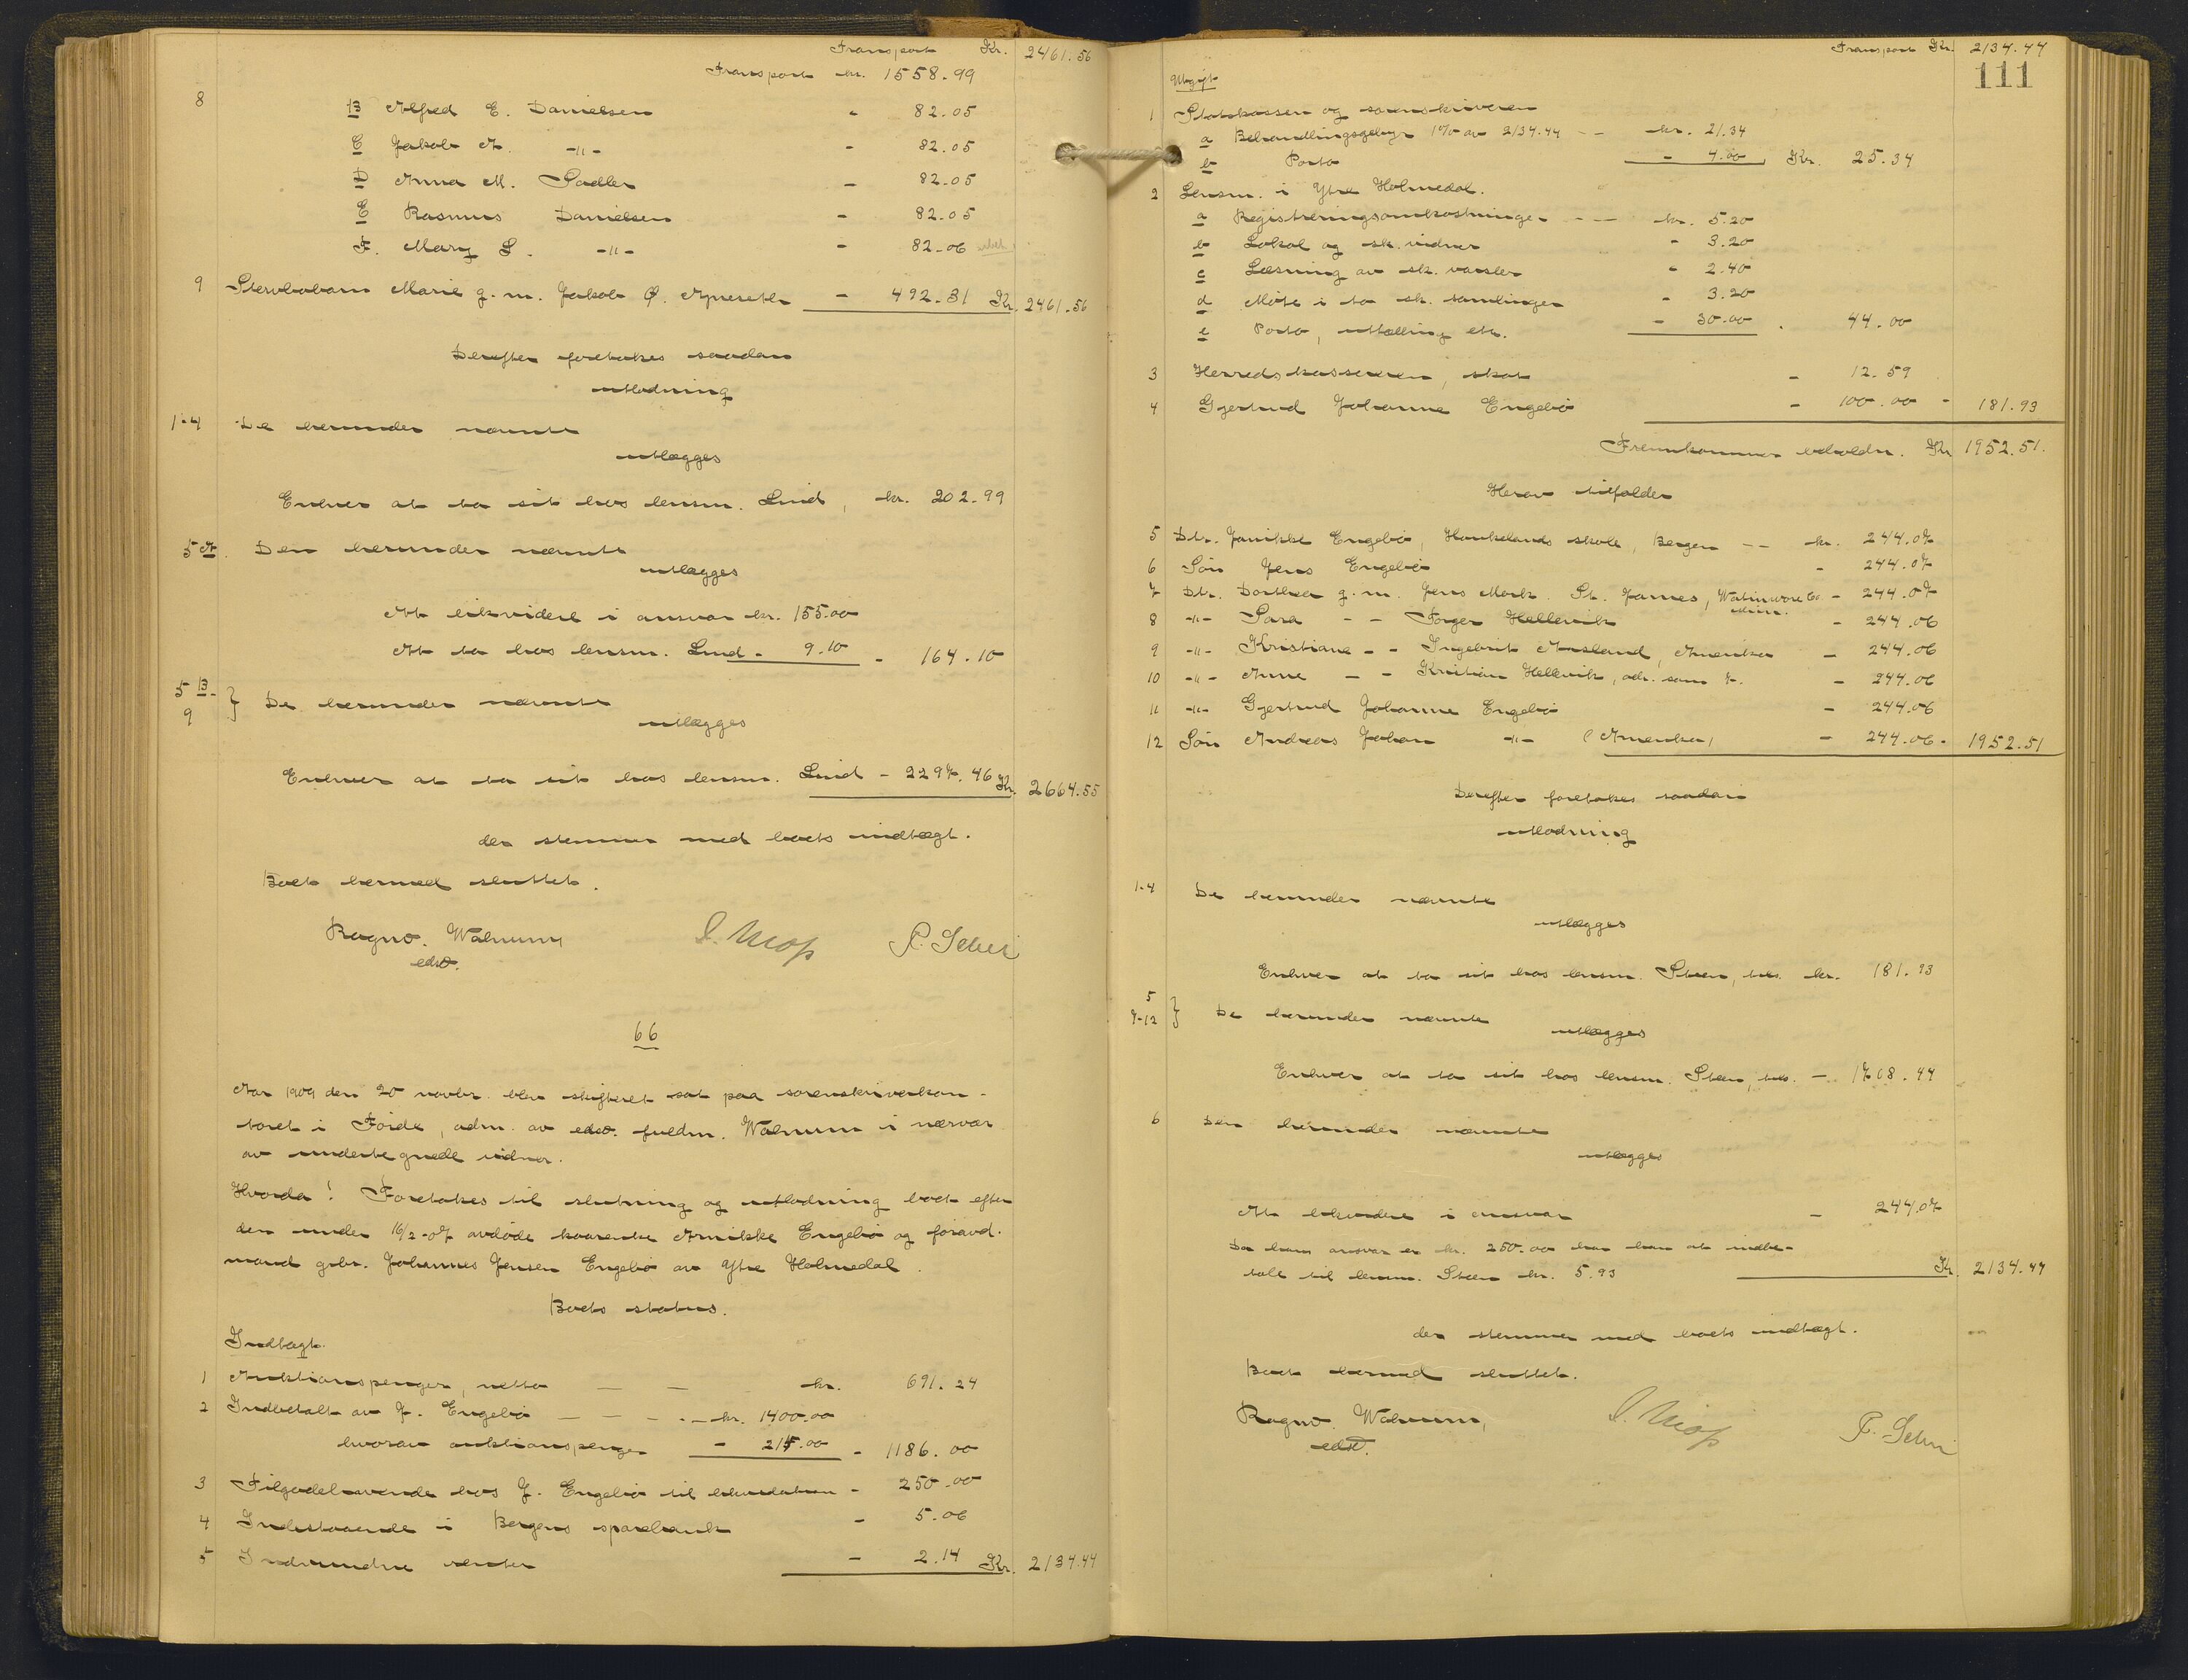 Transport Kr. 2461.56
Transport kr. 1558.99
8 B Alfred E. Danielsen - 82.05
C Jakob A. -"- - 82.05
D Anna M. Sadler - 82.05
E Rasmus Danielsen - 82.05
F. Mary L. -"- - 82.06
9 Stervbobarn Marie g. m. Jakob Ø. - 492.31 Kr. 2461.56
Derefter foretakes saadan
utlodning
1-4 De herunder nævnte
utlægges
Enhver at ta sit hos lensm. Lind, kr. 202.99
5 A. Den herunder nævnte
utlægges
At likvidere i ansvar kr. 155.00
At ta hos lensm. Lind - 9.10 - 164.10
5 B-
9 } De herunder nævnte
utlægges
Enhver at ta sit hos lensm. Lind - 2297.46 Kr. 2664.55
der stemmer med boets indtægt.
Boet hermed sluttet.
Ragnv. Walnum
edsv.
66
Aar 1909 den 20 novbr. blev skifteret sat paa sorenskriverkon-
toret i Förde, adm. av edsv. fuldm. Walnum i nærvær
av undertegnede vidner.
Hvorda! Foretakes til slutning og utlodning boet efter
den under 16/2-07 avdöde kaarenke Anikke Engebö og foravd.
mand gbr. Johannes Jensen Engebö av Ytre Holmedal.
Boets status.
Indtægt.
1 Auktionspenger, netto — — kr. 691.24
2 Indbetalt av J. Engebö — — - - kr. 1400.00
hvorav auktionspenger - 214.00 - 1186.00
3 Tilgodehavende hos J. Engebö til likvidation - 250.00
4 Indestaaende i Bergens sparebank - 5.06
5 Indvundne renter - 2.14 Kr. 2134.44
Transport Kr. 2134.44
111
Utgift
1 Statskassen og sorenskriveren
a Behandlingsgebyr 1% av 2134.44 - - kr. 21.34
b Porto - 4.00 Kr. 25.34
2 Lensm. i Ytre Holmedal.
a Registreringsomkostninger - - kr. 5.20
b Lokal og sk. vidner - 3.20
c Læsning av sk. varsler - 2.40
d Møte i to sk. samlinger - 3.20
e Porto, uttælling etc. - 30.00 . 44.00
3 Herredskassereren, skat - 12.59
4 Gjertrud Johanne Engebö - 100.00 - 181.93
Fremkommer beholdn. Kr 1952.51.
Herav tilfalder
5 Dtr. Janikke Engebö, Haukelands skole, Bergen - - kr. 244.07
6 Sön Jens Engebö - 244.07
7 Dtr. Dorthea g. m. Jens Mork. St. James, Watinwone Co. - 244.07
8 -"- Sara - - Torger Hellevik - 244.06
9 -"- Kristiane - - Ingebrit Aasland, Amerika - 244.06
10 -"- Anne - - Kristian Hellevik, adr. som 7. - 244.06
11 -"- Gjertrud Johanne Engebö - 244.06
12 Sön Andreas Johan -"- (Amerika) - 244.06 - 1952.51
Derefter foretakes saadan
utlodning
1-4 De herunder nævnte
utlægges
Enhver at ta sit hos lensm. Steen, kr. 181.93
5
7-12 } De herunder nævnte
utlægges
Enhver at ta sit hos lensm. Steen, - 1708.44
6 Den herunder nævnte
utlægges
At likvidere i ansvar - 244.07
Da hans ansvar er kr. 250.00 har han at indbe-
tale til lensm. Steen kr. 5.93 Kr. 2134.44
der stemmer med boets indtægt.
Boet hermed sluttet.
Ragnv. Walnum,
edsv.